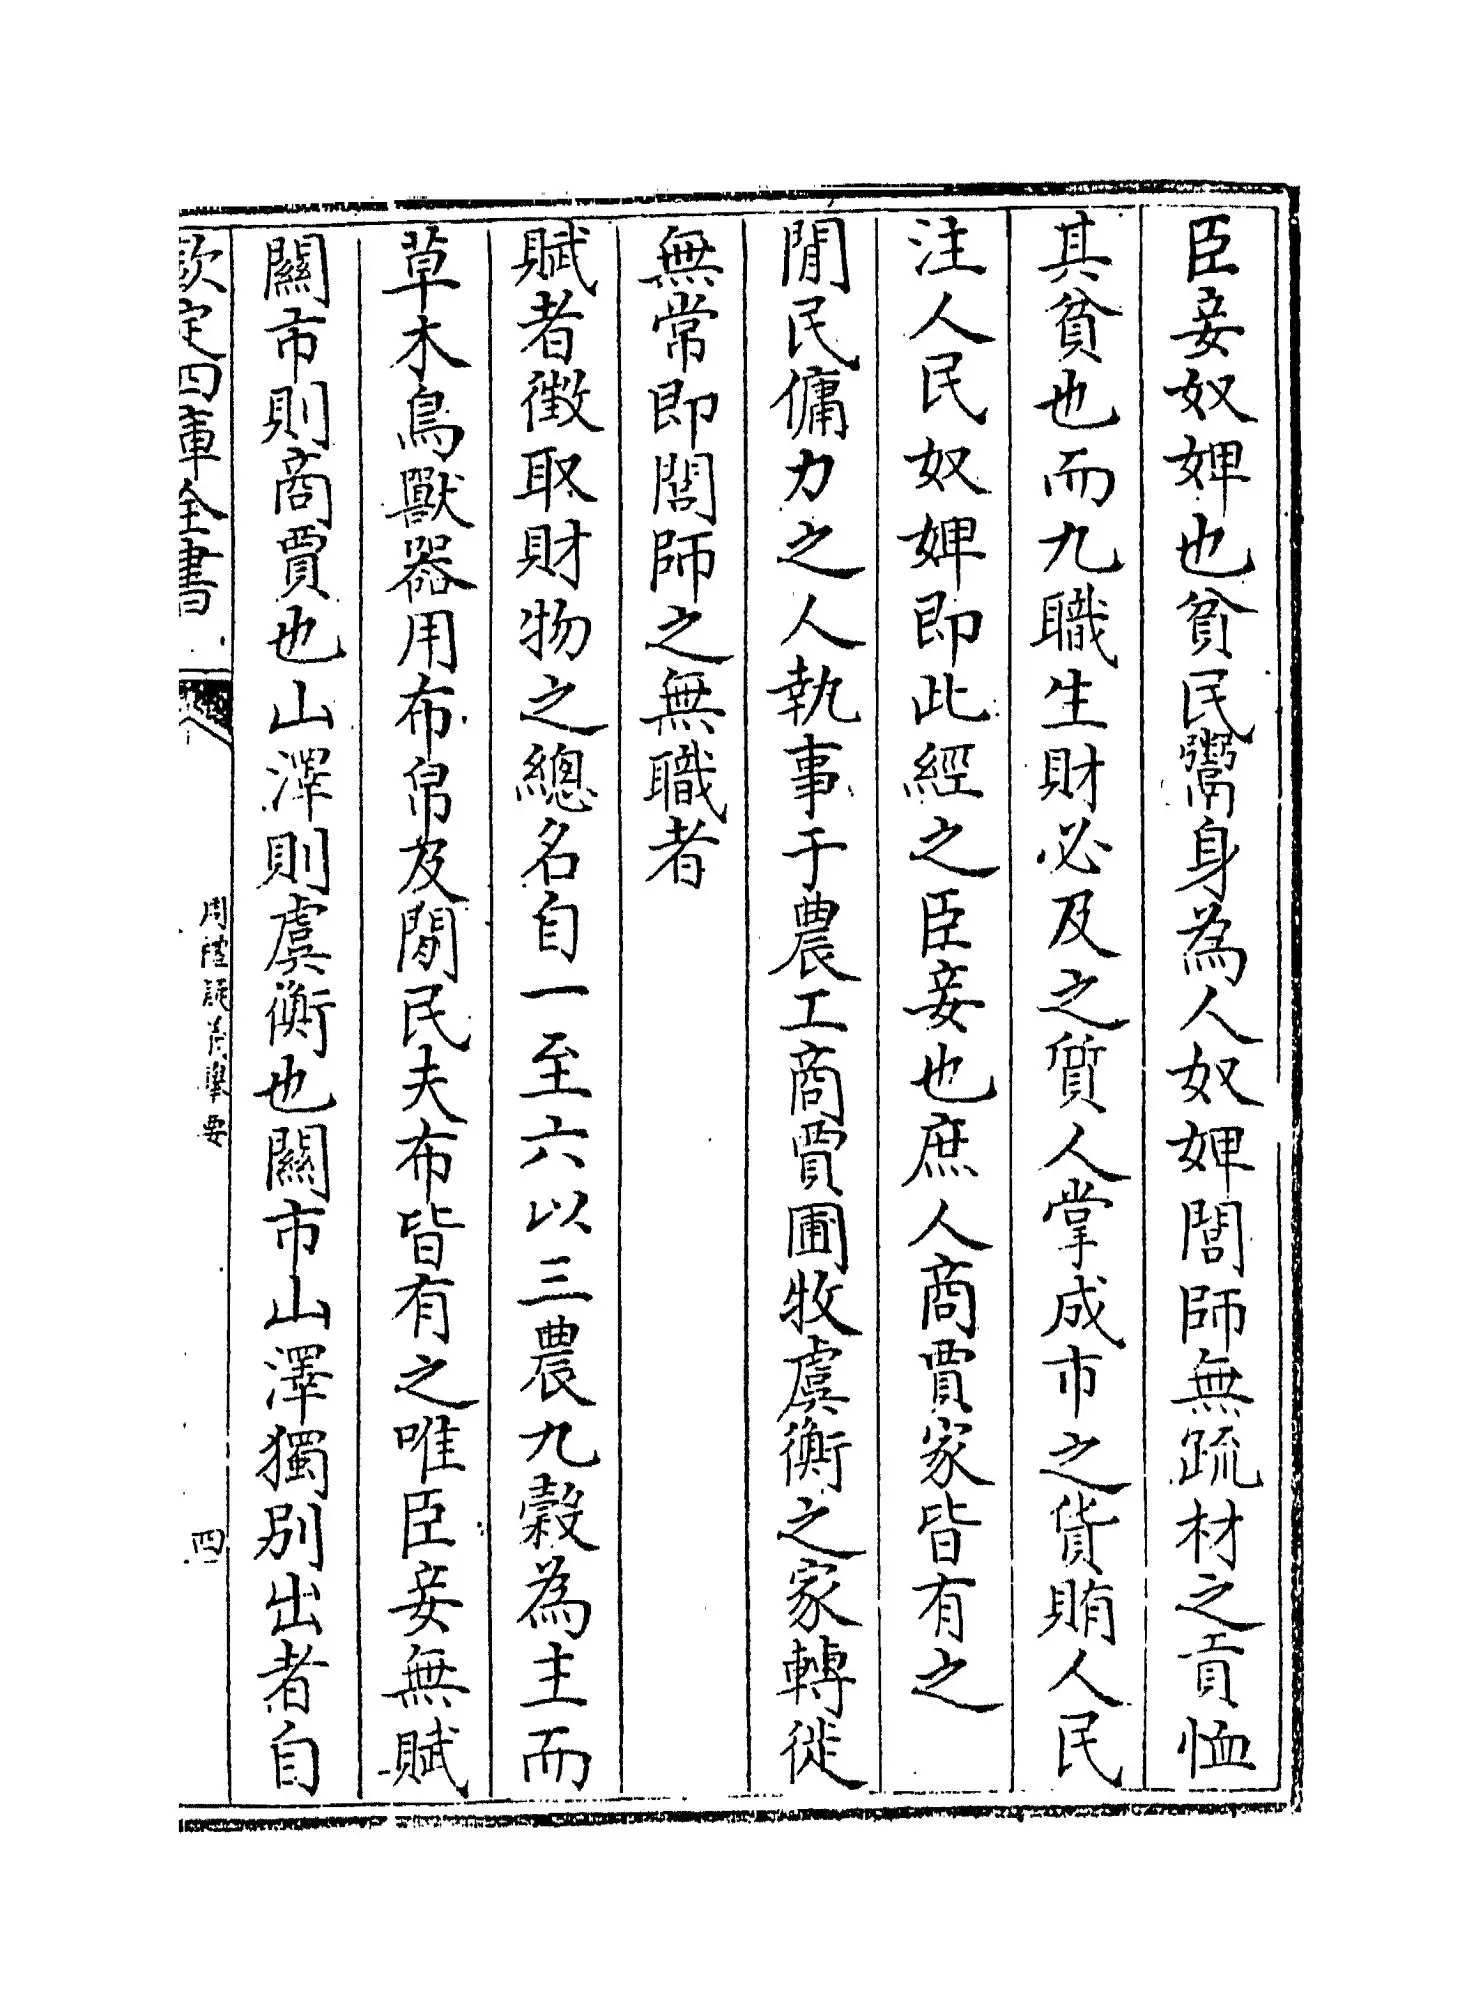 臣妾奴婢也貧民鬻身為人奴婢閭師無疏材之貢恤
其貧也而九職生財必及之質人掌成市之貨賄人民
注人民奴婢即此經之臣妾也庶人商賈家皆有之
閒民傭力之人執事于農工商賈圃牧虞衡之家轉徙
無常即閭師之無職者
賦者徴取財物之總名自一至六以三農九穀為主而
草木鳥獸器用布帛及閒民夫布皆有之唯臣妾無賦
關市則商賈也山澤則虞衡也關市山澤獨別出者自
欽定四庫全書
周禮疑義舉要
四